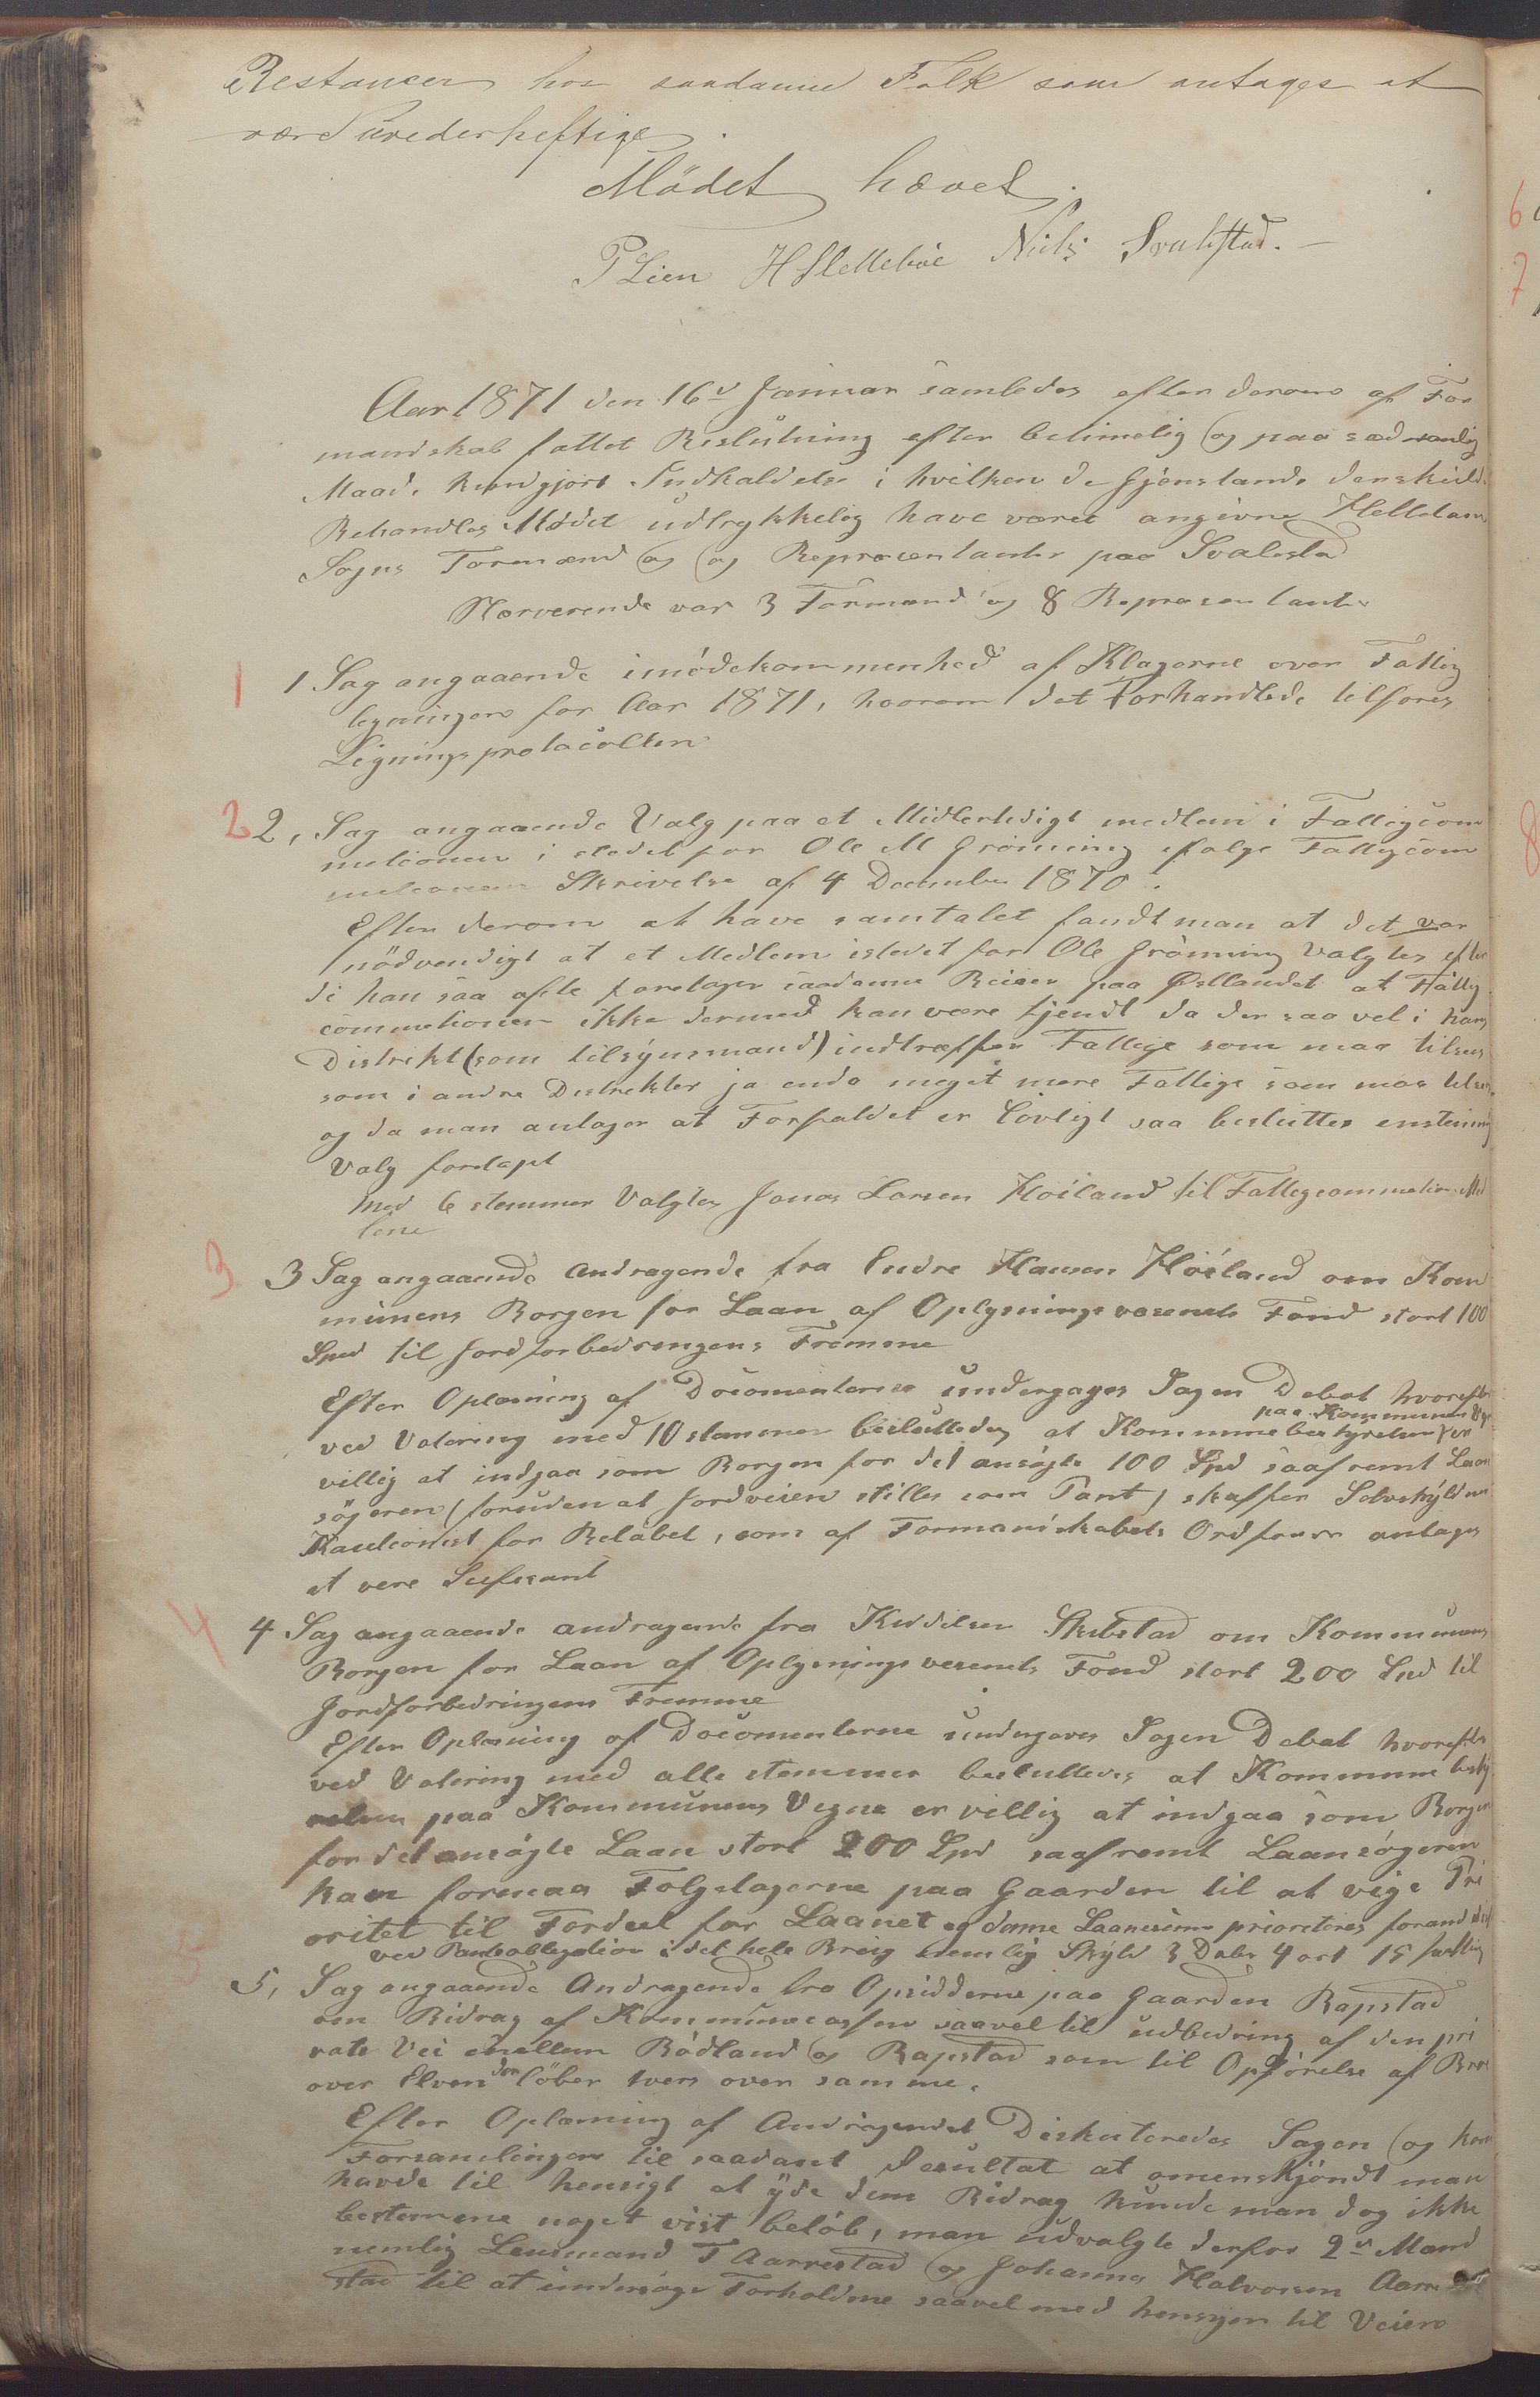 Restancer hos saadanne Folk som antages at
være uvederheftige.
Mödet hævet.
P Lien H Sletteböe Niels Svalestad. —
Aar 1871 den 16d Januar samledes efter derom af For
mandskab fattet Beslutning efter betimelig og paa sædvanlig
Maade kundgjort Indkaldelse i hvilken de Gjenstande den skulde
Behandles Mödet udtrykkelig have været angivne Helleland
Sogns Formænd og og Repræsentanter paa Svalestad
Nærverende var 3 Formænd og 8 Repræsentanter
1 1 Sag angaaende imödekommenhed af Klagerne over Fattig
ligningen for Aar 1871, hvorom det Forhandlede tilføres
Lignings protocollen
2 2, Sag angaaende Valg paa et Midlertidigt medlem i Fattigcom
metionen i stedet for Ole M Grönning ifølge Fattigcom
metionens Skrivelse af 4 December 1870.
Efter derom at have samtalet fandt man at det var
nödvendigt at et Medlem istedet for Ole Grönning Valgtes efter
di han saa ofte foretager saadanne Reiser paa Østlandet at Fattig
commetionen ikke dermed kan være tjendt da der saa vel i hans
Distrikt (som tilsýnsmand) indtræffer Fattige som maa tilsees
som i andre Distrikter ja endo meget mere Fattige som maa tilsees
og da man antager at Forfaldet er lovligt saa besluttes enstemig
Valg foretaget
Med 6 stemmer Valgtes Jonas Larsen Höiland til Fattigcommetions Med
lem
3 3 Sag angaaende Andragende fra Endre Hansen Höiland om Kom
munens Borgen for Laan af Oplysnings væsenets Fond stort 100
Spd til Jordforbedringens Fremme
Efter Oplæsning af Documenterne undergaves Sagen Debat hvorefter
ved Votering med 10 stemmer besluttedes at Kommunebestyrelsen paa Kommunens Vegne er
villig at indgaa som Borgen for det ansøgte 100 Spd saafremt Laan
sögeren (foruden at Jordveien stilles som Pant) skaffer Selvskýldner
Kautionist for Belöbet, som af Formandskabets Ordförer antages
at vere Suffisant
4 4 Sag angaaende andragende fra Kiddelsen Skebstad om Kommunens
Borgen for Laan af Oplysnings vesenets Fond stort 200 Spd til
Jordforbedringens Fremme
Efter Oplæsning af Documenterne undergaves Sagen Debat hvorefter
ved Votering med alle stemmer besluttedes at Kommune besty
relsen paa Kommunens Vegne er villig at indgaa som Borgen
for det ansøgte Laan stort 200 Spd saafremt Laansøgeren
kan formaa Folgetagerne paa Gaarden til at vige Pri
oritet til Fordeel for Laanet og denne Laanesum prioriteres
ved Panteobligation i det hele Brug nemlig Skyld 3 Daler 4 ort 15 Skilling
5 5, Sag angaaende Andragende fra Opsidderne paa Gaarden Rapstad
om Bidrag af Kommunecassen saavel til udbedring af den pri
vate Vei mellem Bödland og Rapstad som til Opförelse af Bro
over Elven der löber tvers over samme.
Efter Oplæsning af Andragendet Diskuteredes Sagen og kom
Forsamlingen til saadant Resultat at omenskjöndt man
havde til hensigt at yde dem Bidrag kunde man dog ikke
bestemme noget vist belöb, man udvalgte derfor 2de Mænd
nemlig Lensmand T Aarrestad og Johannes Halvorsen Aarre
stad til at undersöge Forholdene saavel med hensyn til Veiens
6
7
8